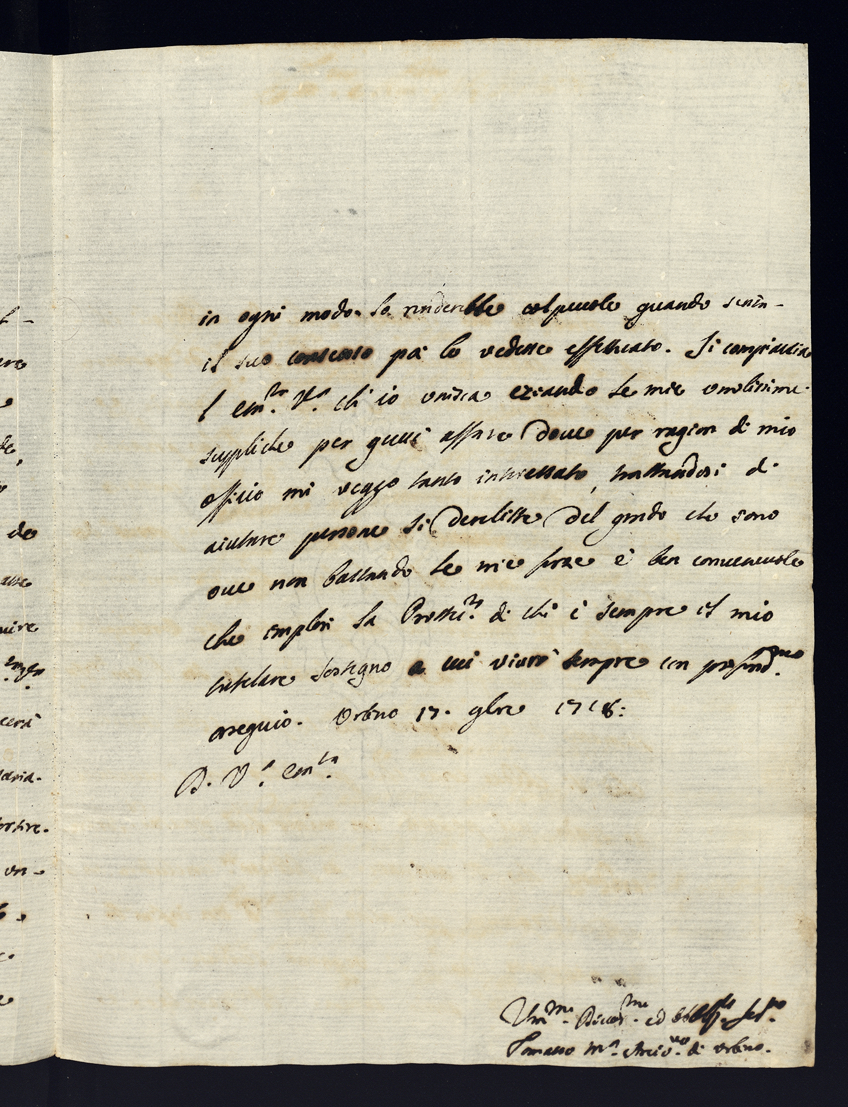 in ogni modo. Lo renderebbe colpevole quando senza
il suo consenso poi lo vedesse effettuato. Si compiaccia
l'Em.za V.ra ch'io unisca eziando le mie umilissime
suppliche per questi affare dove per ragion di mio
officio mi veggo tanto interessato, trattandosi di
aiutare persone sì derelitte del grado che sono
ove non bastando le mie forze è ben convenevole
che implori la Prottet.ne di chi è sempre il mio
tutelare sostegno a cui vivrò sempre con profond.mo
osseguio. Urbino 17. 9bre 1718:
D. V.ra Em.za
Um.mo Divot.mo ed Obblig.mo ser.re
Tomaso M.a Arciv.vo di Urbino.
de